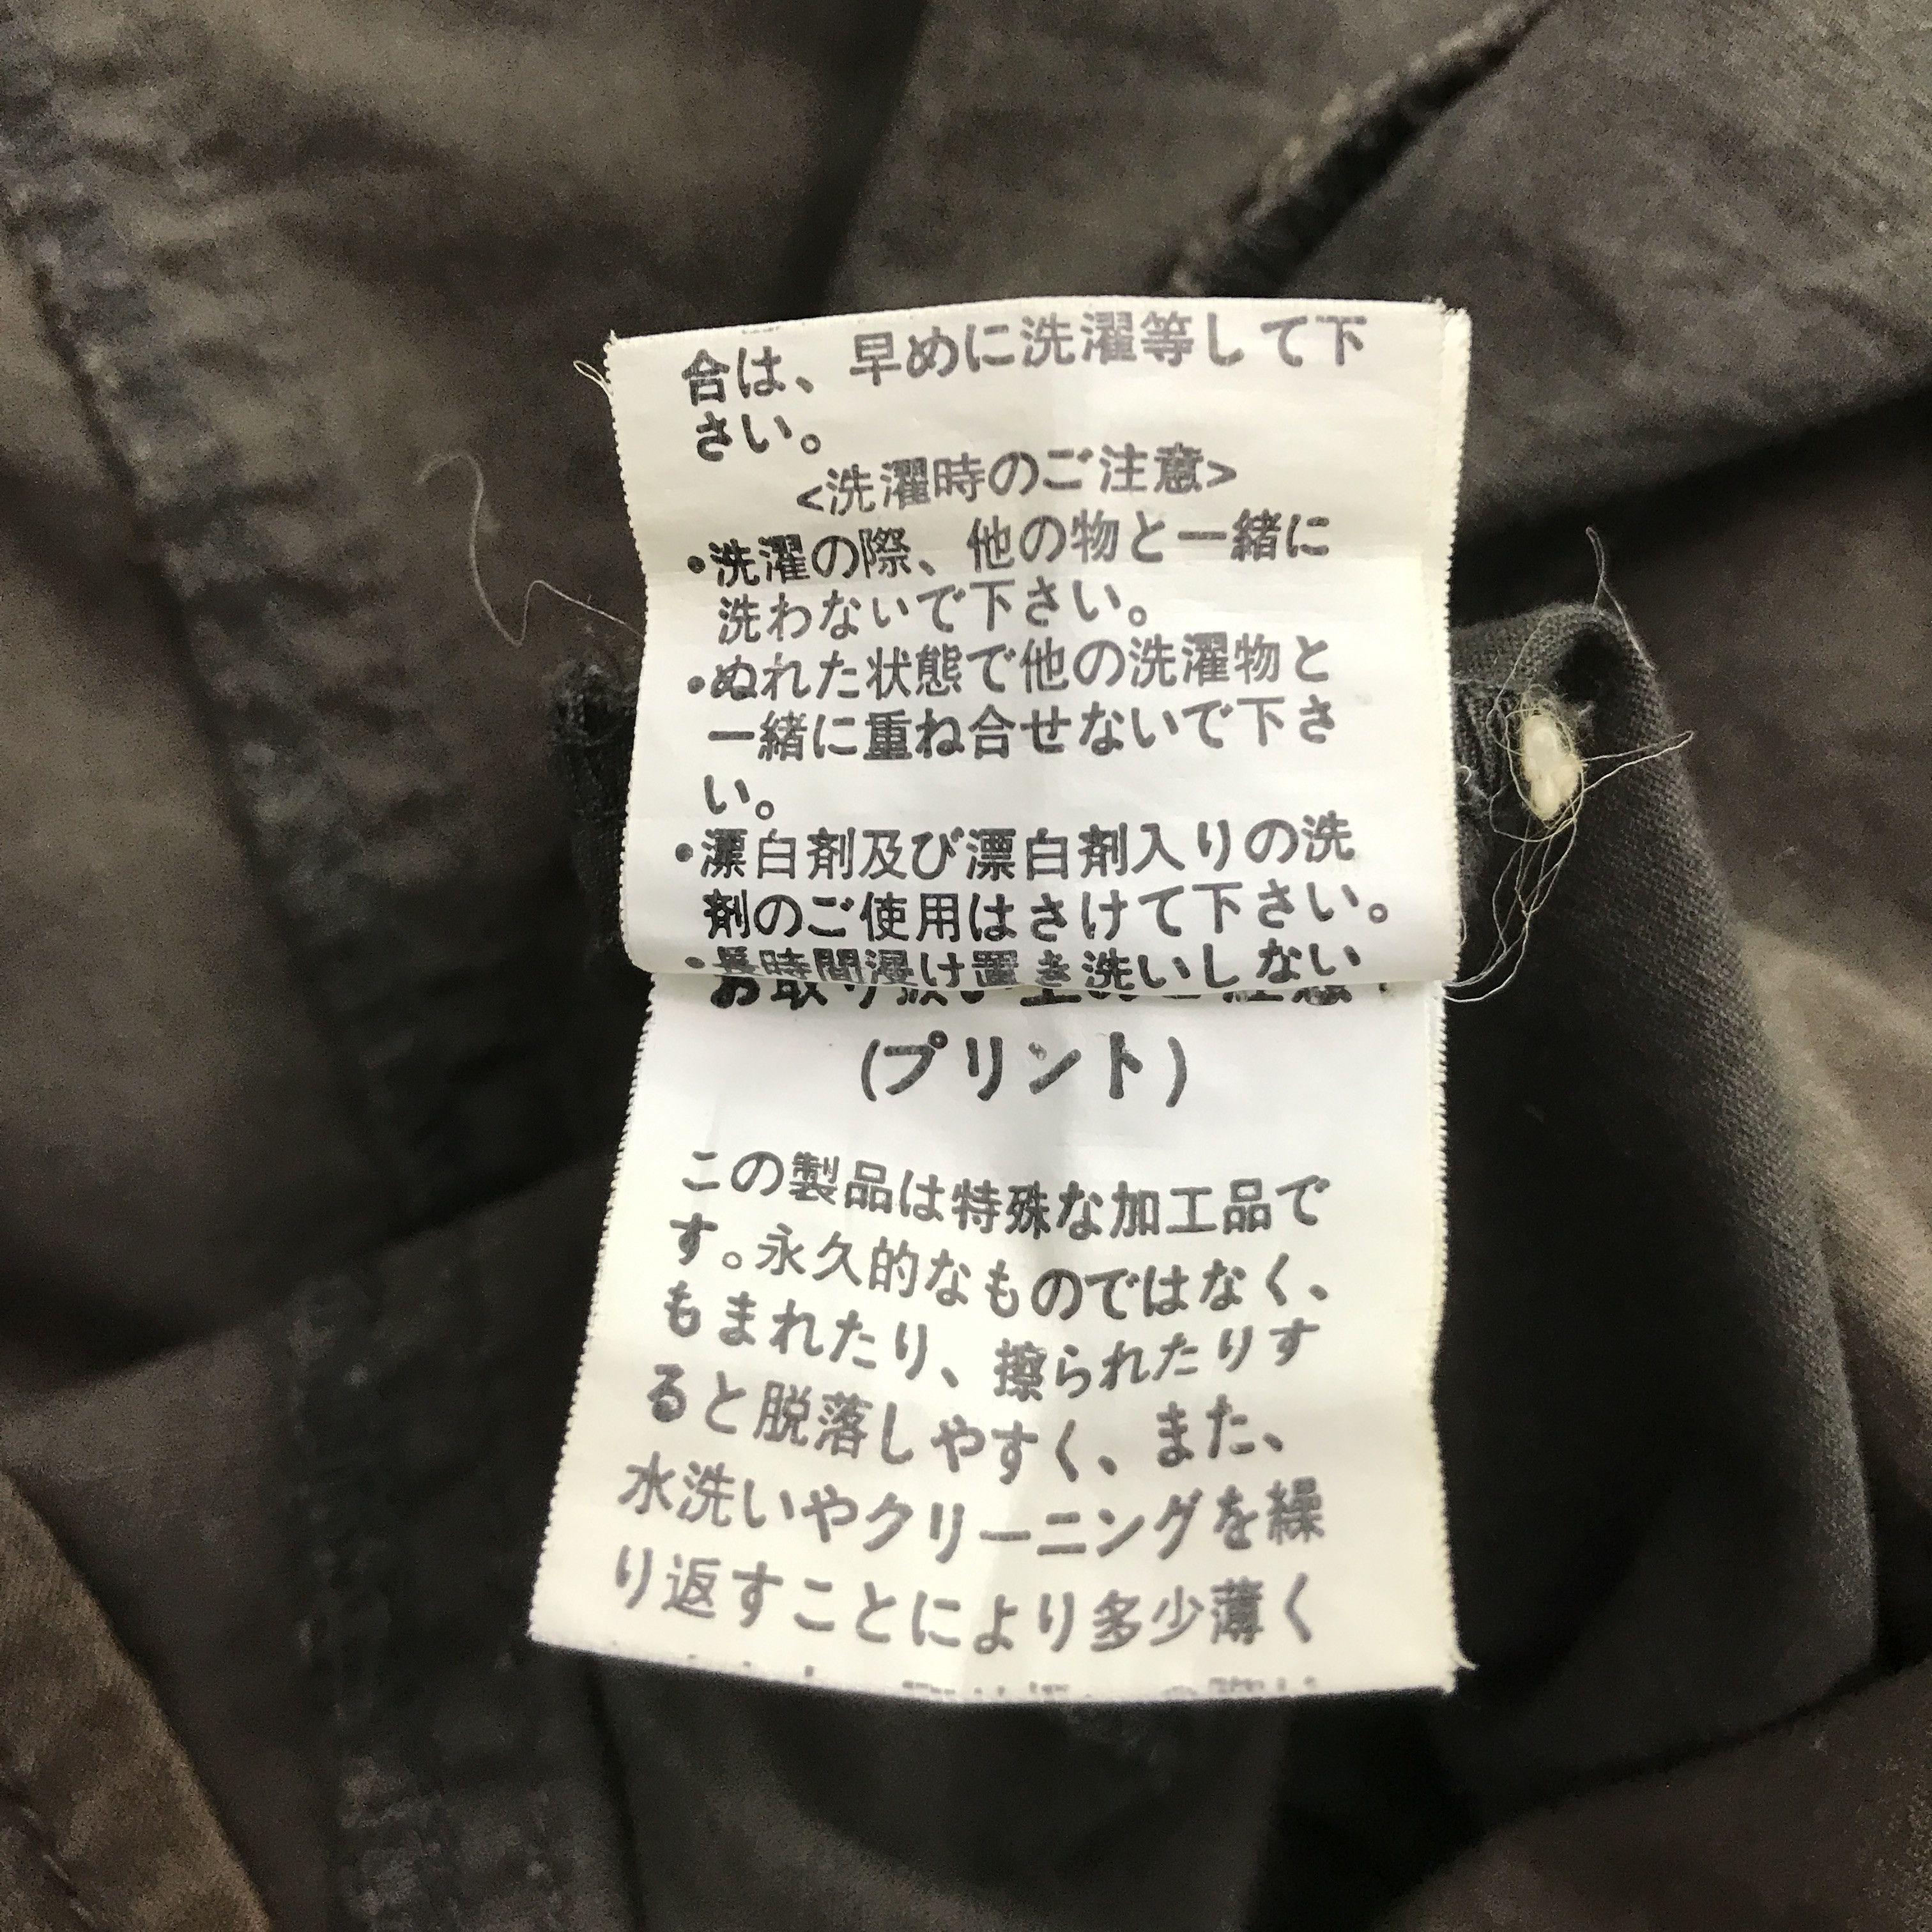 合は、早めに洗濯等して下
さい。
<洗濯時のご注意>
・洗濯の際、他の物と一緒に
洗わないで下さい。
・ぬれた状態で他の洗濯物と
一緒に重ね合せないで下さ
い。
・漂白剤及び漂白剤入りの洗
剤のご使用はさけて下さい。
・長時間浸け置き洗いしない
お取り扱い上のご注意
(プリント)
この製品は特殊な加工品で
す。永久的なものではなく、
もまれたり、擦られたりす
ると脱落しやすく、また、
水洗いやクリーニングを繰
り返すことにより多少薄く